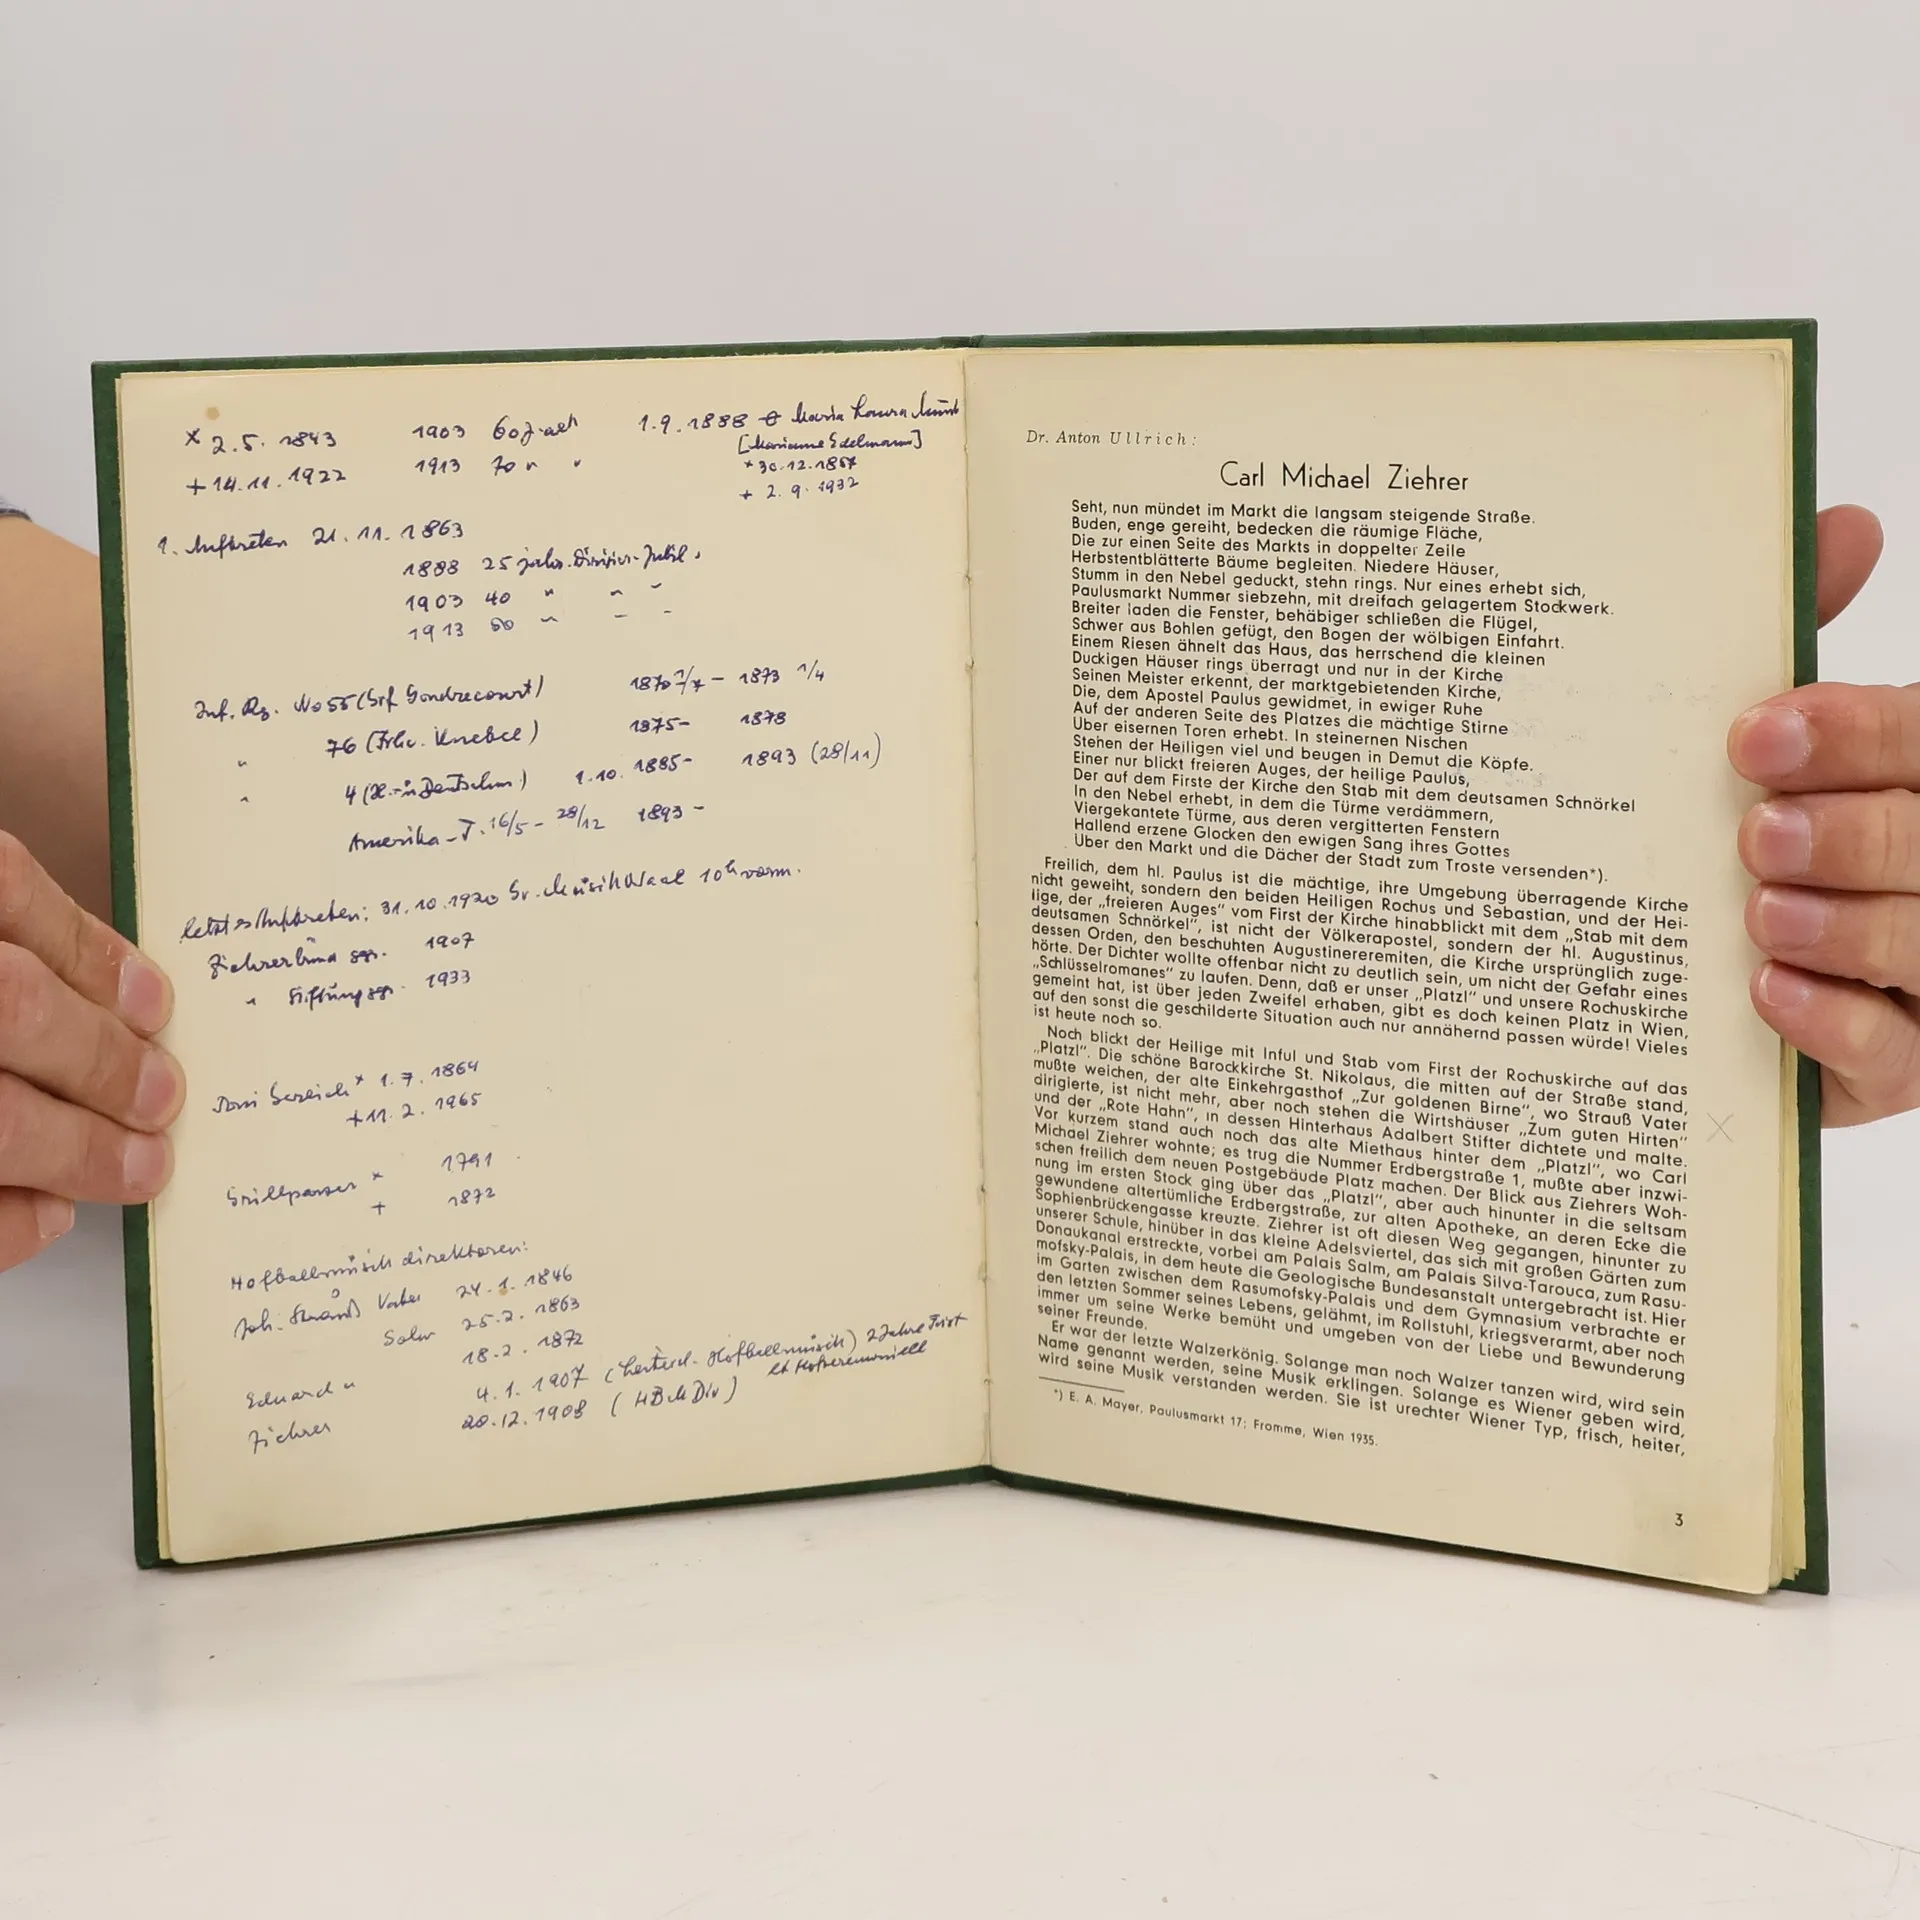 × 2. 5. 1843 1903 60 j. alt 1. 9. 1888 Maria Laura
+ 14. 11. 1922 1913 70 " "
[Marianne Edelmann]
* 30. 12. 1857
+ 2. 9. 1932
1. Auftreten 21. 11. 1863
1888 25 jahr. Jubil.
1903 40 " " "
1913 50 " " "
Inf. Rg. No 55 (Grf Gondrecourt) 1870 1/7 – 1873 1/4
" 76 (Frhr. Knebel) 1875 – 1878
" 4 (H. u. Deutschm.) 1. 10. 1885 – 1893 (28/11)
Amerika – T. 16/5 – 28/12 1893 –
letztes Auftreten: 31. 10. 1920 Gr. Musikv.saal 10 h vorm.
Ziehrerbund ggr. 1907
" Stiftung ggr. 1933
* 1. 7. 1864
+ 11. 2. 1965
Grillparzer * 1791
+ 1872
Hofballmusikdirektoren:
Joh. Strauß Vater 24. 1. 1846
Sohn 25. 2. 1863
Eduard " 18. 2. 1872
Ziehrer 4. 1. 1907 (Hofballmusik) 2 Jahre Frist
lt Hofzeremoniell
20. 12. 1908 (HBMDir)
Dr. Anton Ullrich:
Carl Michael Ziehrer
Seht, nun mündet im Markt die langsam steigende Straße.
Buden, enge gereiht, bedecken die räumige Fläche,
Die zur einen Seite des Markts in doppelter Zeile
Herbstentblätterte Bäume begleiten. Niedere Häuser,
Stumm in den Nebel geduckt, stehn rings. Nur eines erhebt sich,
Paulusmarkt Nummer siebzehn, mit dreifach gelagertem Stockwerk.
Breiter laden die Fenster, behäbiger schließen die Flügel,
Schwer aus Bohlen gefügt, den Bogen der wölbigen Einfahrt.
Einem Riesen ähnelt das Haus, das herrschend die kleinen
Duckigen Häuser rings überragt und nur in der Kirche
Seinen Meister erkennt, der marktgebietenden Kirche,
Die, dem Apostel Paulus gewidmet, in ewiger Ruhe
Auf der anderen Seite des Platzes die mächtige Stirne
Über eisernen Toren erhebt. In steinernen Nischen
Stehen der Heiligen viel und beugen in Demut die Köpfe.
Einer nur blickt freieren Auges, der heilige Paulus,
Der auf dem Firste der Kirche den Stab mit dem deutsamen Schnörkel
In den Nebel erhebt, in dem die Türme verdämmern,
Viergekantete Türme, aus deren vergitterten Fenstern
Hallend erzene Glocken den ewigen Sang ihres Gottes
Über den Markt und die Dächer der Stadt zum Troste versenden*).
Freilich, dem hl. Paulus ist die mächtige, ihre Umgebung überragende Kirche
nicht geweiht, sondern den beiden Heiligen Rochus und Sebastian, und der Hei-
lige, der „freieren Auges" vom First der Kirche hinabblickt mit dem „Stab mit dem
deutsamen Schnörkel", ist nicht der Völkerapostel, sondern der hl. Augustinus,
dessen Orden, den beschuhten Augustinereremiten, die Kirche ursprünglich zuge-
hörte. Der Dichter wollte offenbar nicht zu deutlich sein, um nicht der Gefahr eines
„Schlüsselromanes" zu laufen. Denn, daß er unser „Platzl" und unsere Rochuskirche
gemeint hat, ist über jeden Zweifel erhaben, gibt es doch keinen Platz in Wien,
auf den sonst die geschilderte Situation auch nur annähernd passen würde! Vieles
ist heute noch so.
Noch blickt der Heilige mit Inful und Stab vom First der Rochuskirche auf das
„Platzl". Die schöne Barockkirche St. Nikolaus, die mitten auf der Straße stand,
mußte weichen, der alte Einkehrgasthof „Zur goldenen Birne", wo Strauß Vater
dirigierte, ist nicht mehr, aber noch stehen die Wirtshäuser „Zum guten Hirten"
und der „Rote Hahn", in dessen Hinterhaus Adalbert Stifter dichtete und malte.
Vor kurzem stand auch noch das alte Miethaus hinter dem „Platzl", wo Carl
Michael Ziehrer wohnte; es trug die Nummer Erdbergstraße 1, mußte aber inzwi-
schen freilich dem neuen Postgebäude Platz machen. Der Blick aus Ziehrers Woh-
nung im ersten Stock ging über das „Platzl", aber auch hinunter in die seltsam
gewundene altertümliche Erdbergstraße, zur alten Apotheke, an deren Ecke die
Sophienbrückengasse kreuzte. Ziehrer ist oft diesen Weg gegangen, hinunter zu
unserer Schule, hinüber in das kleine Adelsviertel, das sich mit großen Gärten zum
Donaukanal erstreckte, vorbei am Palais Salm, am Palais Silva-Tarouca, zum Rasu-
mofsky-Palais, in dem heute die Geologische Bundesanstalt untergebracht ist. Hier
im Garten zwischen dem Rasumofsky-Palais und dem Gymnasium verbrachte er
den letzten Sommer seines Lebens, gelähmt, im Rollstuhl, kriegsverarmt, aber noch
immer um seine Werke bemüht und umgeben von der Liebe und Bewunderung
seiner Freunde.
Er war der letzte Walzerkönig. Solange man noch Walzer tanzen wird, wird sein
Name genannt werden, seine Musik erklingen. Solange es Wiener geben wird,
wird seine Musik verstanden werden. Sie ist urechter Wiener Typ, frisch, heiter,
*) E. A. Mayer, Paulusmarkt 17; Fromme, Wien 1935.
3